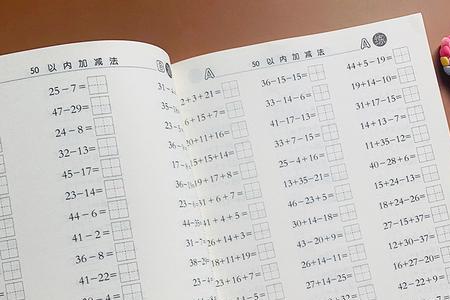 50 以内加减法
25-7=
47-29=
24-8=
32-13=
45-17=
23-14=
44-6=
41-2=
36-8=
41-22=
A
50 以内加减法
A 练
2+3+21=
6+15+7=
20+11+16=
15+15+14=
19+17+8=
31+6+7=
41+4+5=
26+14+3=
18+11+19=
23+16+7=
36-15-15=
33-14-6=
41-17-13=
33+7-15=
25-4+16=
13+35-21=
46-23+5=
30+14-18=
43-20+9=
26+11-27=
27+14-25=
44+5-19=
19+14-10=
31+17-15=
14+13-7=
11+35-12=
40-28+6=
15+24-13=
18+24-26=
27-15+37=
12+30-37=
16+27-20=
42-22+9=